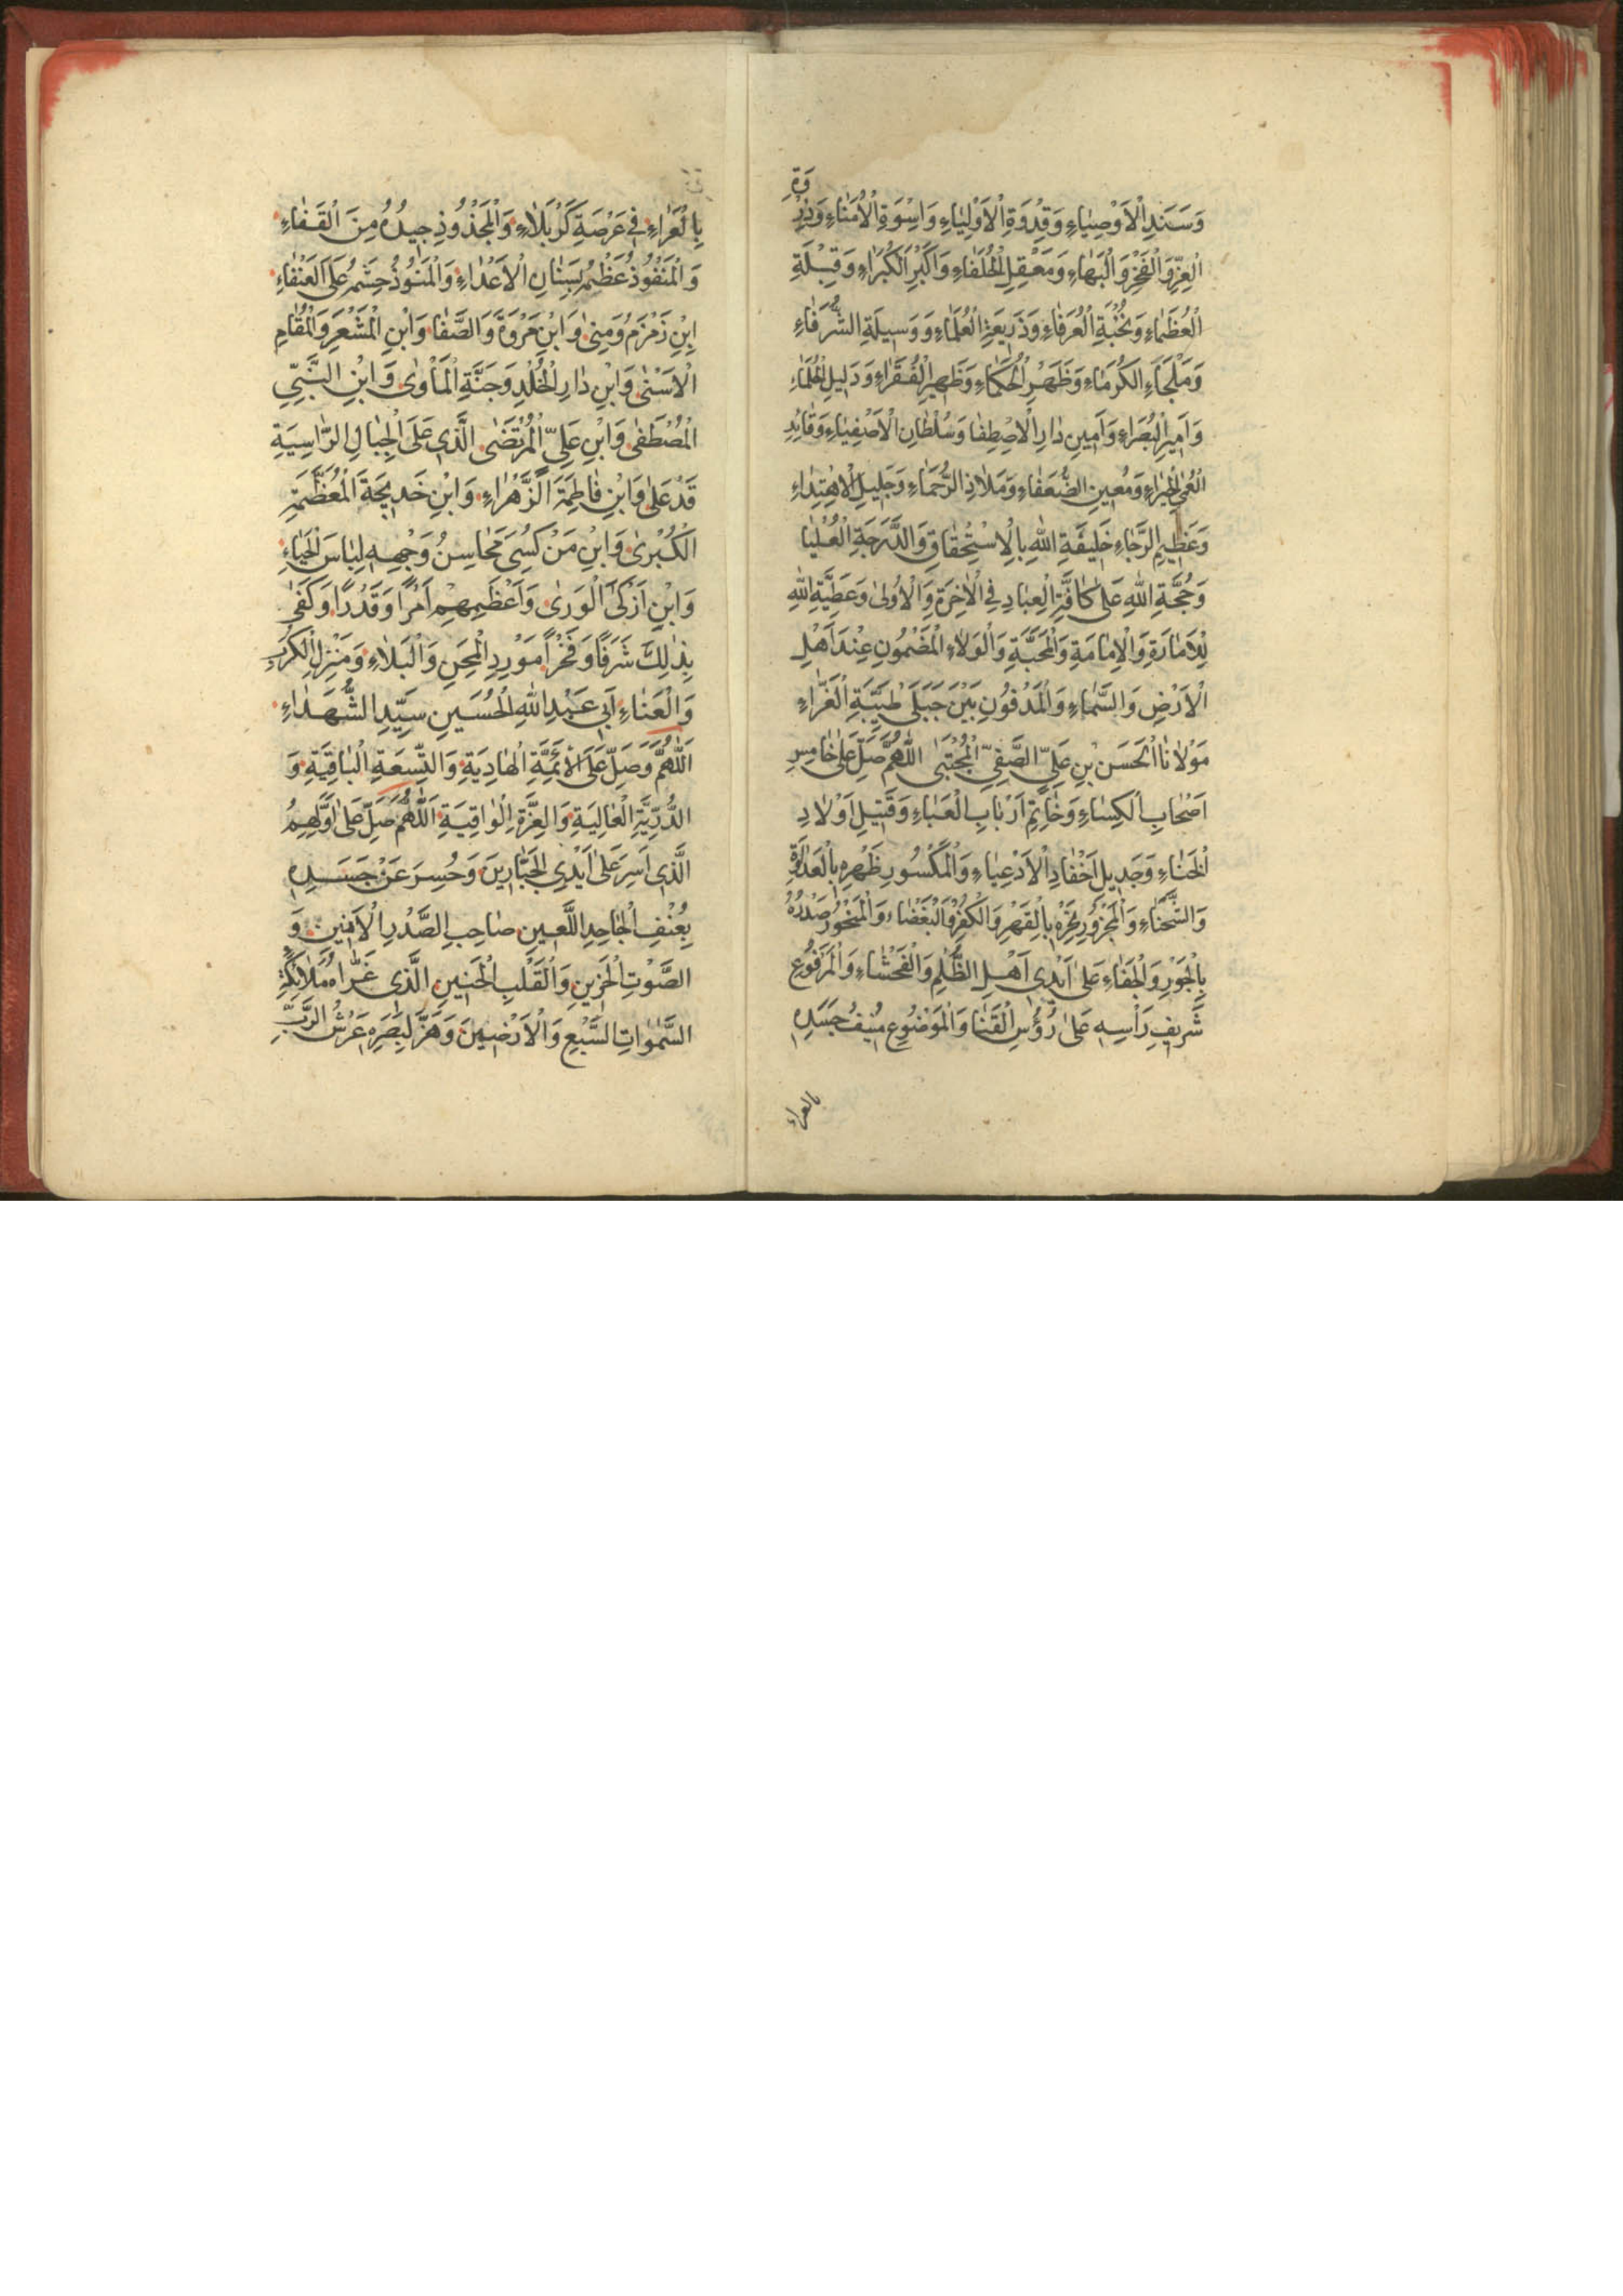 وَسَنَدِ الْاَوْصِيَاءِ وَقِدْوَةِ الْاَوْلِيَاءِ وَاِسْوَةِ الْاُمَنَاءِ وَذِرْوَةِ
الْعِزِّ وَالْفَخْرِ وَالْبَهَاءِ وَمَعْقِلِ الْخُلَفَاءِ وَاَكْبَرِ الْكُبَرَاءِ وَقِبْلَةِ
الْعُظَمَاءِ وَنُخْبَةِ الْعُرَفَاءِ وَذَرِيعَةِ الْعُلَمَاءِ وَوَسِيلَةِ الشُّرَفَاءِ
وَمَلْجَاءِ الْكُرَمَاءِ وَظَهْرِ الْحُكَمَاءِ وَظَهِيرِ الْفُقَرَاءِ وَدَلِيلِ
وَاَمِيرِ الْبُصَرَاءِ وَاَمِينِ دَارِ الْاِصْطِفَا وَسُلْطَانِ الْاَصْفِيَاءِ وَقَائِدِ
وَمُعِينِ الضُّعَفَاءِ وَمَلَاذِ الرُّحَمَاءِ وَجَلِيلِ الْاِهْتِدَاءِ
وَعَظِيمِ الرَّجَاءِ خَلِيفَةِ اللّٰهِ بِالْاِسْتِحْقَاقِ وَالدَّرَجَةِ الْعُلْيَا
وَحُجَّةِ اللّٰهِ عَلٰى كَافَّةِ الْعِبَادِ فِي الْاٰخِرَةِ وَالْاُولٰى وَعَطِيَّةِ اللّٰهِ
لِلْاَمَارَةِ وَالْاِمَامَةِ وَالْمَحَبَّةِ وَالْوِلَاءِ الْمَضْمُونِ عِنْدَ اَهْلِ
الْاَرْضِ وَالسَّمَاءِ وَالْمَدْفُونِ بَيْنَ جَبَلَيْ طَيِّبَةِ الْغَرَّاءِ
مَوْلَانَا الْحَسَنِ بْنِ عَلِيٍّ الصَّفِيِّ الْمُجْتَبٰى اَللّٰهُمَّ صَلِّ عَلٰى خَامِسِ
اَصْحَابِ الْكِسَاءِ وَخَاتِمِ اَرْبَابِ الْعَبَاءِ وَقَتِيلِ اَوْلَادِ
الْخَنَاءِ وَجَدِيلِ اَحْفَادِ الْاَدْعِيَاءِ وَالْمَكْسُورِ ظَهْرِهِ بِالْعَدَاوَةِ
وَالشَّحْنَاءِ وَالْمَجْزُورِ نَحْرِهِ بِالْقَهْرِ وَالْكُفْرِ وَالْبَغْضَاءِ وَالْمَنْحُورِ صَدْرُهُ
بِالْجَوْرِ وَالْجَفَاءِ عَلٰى اَيْدِي اَهْلِ الظُّلْمِ وَالْفَحْشَاءِ وَالْمَرْفُوعِ
شَرِيفِ رَأْسِهِ عَلٰى رُؤُسِ الْقَنَا وَالْمَوْضُوعِ مُنِيفُ جَسَدِهِ
بالعراء
بِالْعَرَاءِ فِي عَرْصَةِ كَرْبَلَاءِ وَالْمَجْذُوذِ جِيدُهُ مِنَ الْقَفَاءِ
وَالْمَنْفُوذِ عَظْمُهُ بِسِنَانِ الْاَعْدَاءِ عَلَى الْعَنْفَاءِ
اِبْنِ زَمْزَمَ وَمِنٰى وَابْنِ مَرْوَةَ وَالصَّفَا وَابْنِ الْمَشْعَرِ وَالْمُقَامِ
الْاَسْنٰى وَابْنِ دَارِ الْخُلْدِ وَجَنَّةِ الْمَأْوٰى وَابْنِ النَّبِيِّ
الْمُصْطَفٰى وَابْنِ عَلِيٍّ الْمُرْتَضٰى الَّذِي عَلَى الْجِبَالِ الرَّاسِيَةِ
قَدْ عَلٰى وَابْنِ فَاطِمَةَ الزَّهْرَاءِ وَابْنِ خَدِيجَةَ الْمُعَظَّمَةِ
الْكُبْرٰى وَابْنِ مَنْ كُسِيَ مَحَاسِنُ وَجْهِهِ لِبَاسَ الْحَيَاءِ
وَابْنِ اَزْكَى الْوَرٰى وَاَعْظَمِهِمْ اَمْرًا وَقَدْرًا وَكَفٰى
بِذٰلِكَ شَرَفًا وَفَخْرًا مَوْرِدِ الْمِحَنِ وَالْبَلَاءِ وَمَنْزِلِ الْكَرْبِ
وَالْعَنَاءِ اَبِي عَبْدِ اللّٰهِ الْحُسَيْنِ سَيِّدِ الشُّهَدَاءِ
اَللّٰهُمَّ وَصَلِّ عَلَى الْاَئِمَّةِ الْهَادِيَةِ وَالتِّسْعَةِ الْبَاقِيَةِ وَ
الذُّرِّيَّةِ الْعَالِيَةِ وَالْعِزَّةِ الْوَاقِيَةِ اَللّٰهُمَّ صَلِّ عَلٰى اَوَّلِهِمُ
الَّذِي اُسِرَ عَلٰى اَيْدِي الْجَبَّارِينَ وَحُسِرَ عَنْ جَسَدِهِ
بِعُنْفِ الْجَاحِدِ اللَّعِينِ صَاحِبِ الصَّدْرِ الْاَمِينِ وَ
الصَّوْتِ الْحَزِينِ وَالْقَلْبِ الْحَنِينِ الَّذِي عَزَّاهُ مَلَائِكَةِ
السَّمٰوَاتِ السَّبْعِ وَالْاَرَضِينَ وَهَزَّ لِبَصَرِهِ عَرْشُ الرَّبِّ